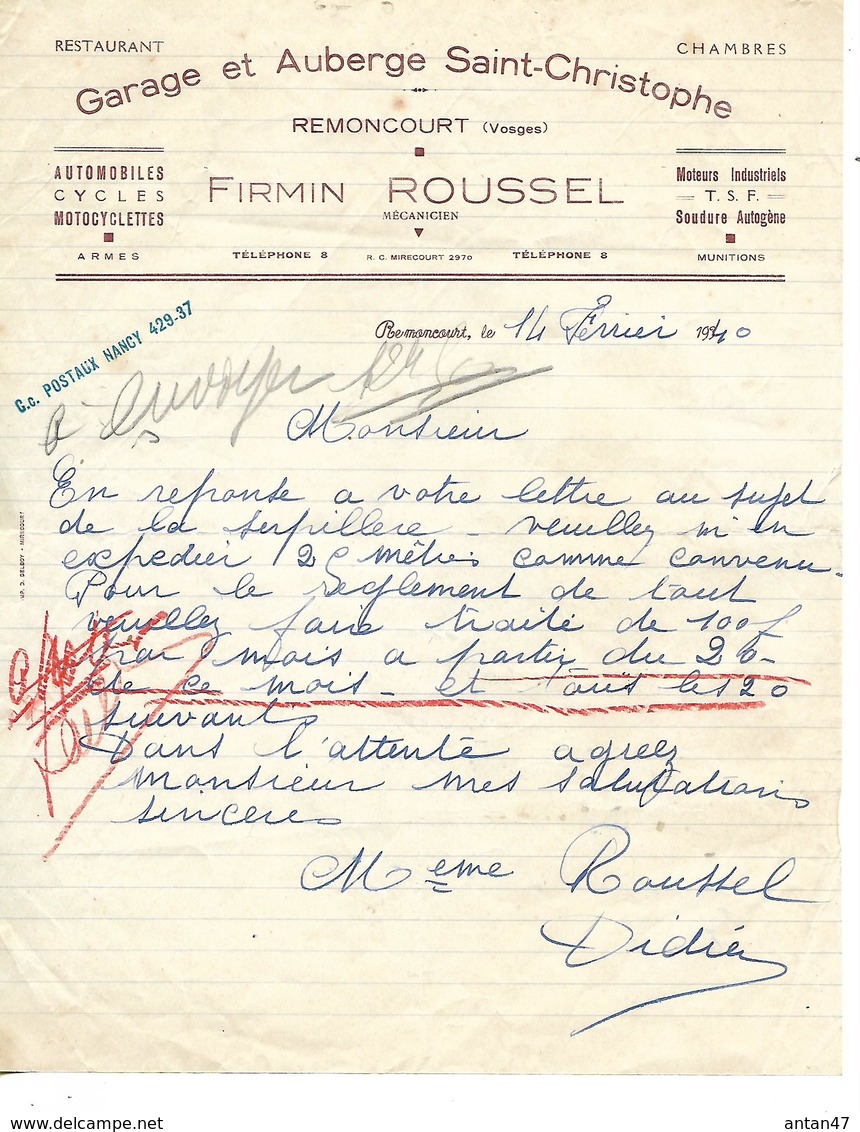 RESTAURANT
CHAMBRES
Garage et Auberge Saint-Christophe
REMONCOURT (Vosges)
AUTOMOBILES
CYCLES
MOTOCYCLETTES
ARMES
FIRMIN ROUSSEL
MÉCANICIEN
Moteurs Industriels
T. S. F.
Soudure Autogène
MUNITIONS
TÉLÉPHONE 8
R. C. MIRECOURT 2970
TÉLÉPHONE 8
Remoncourt, le 14 Février 1940
C.c. POSTAUX NANCY 429-37
Monsieur
En reponse a votre lettre au sujet
de la serpillere - veuillez m'en
expedier metres comme convenu-
Pour le reglement de tout
veuillez faire traité de 100f
par mois a partir du 20-
de ce mois - et tous les 20
suivants
Dans l'attente agreez
monsieur mes salutations
sinceres
Meme Roussel
Didier
IMP. D. DELROY - MIRECOURT
antan47